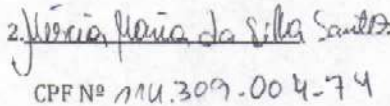 2. Márcia Maria da Silva Santos
CPF Nº 114.309.004-74